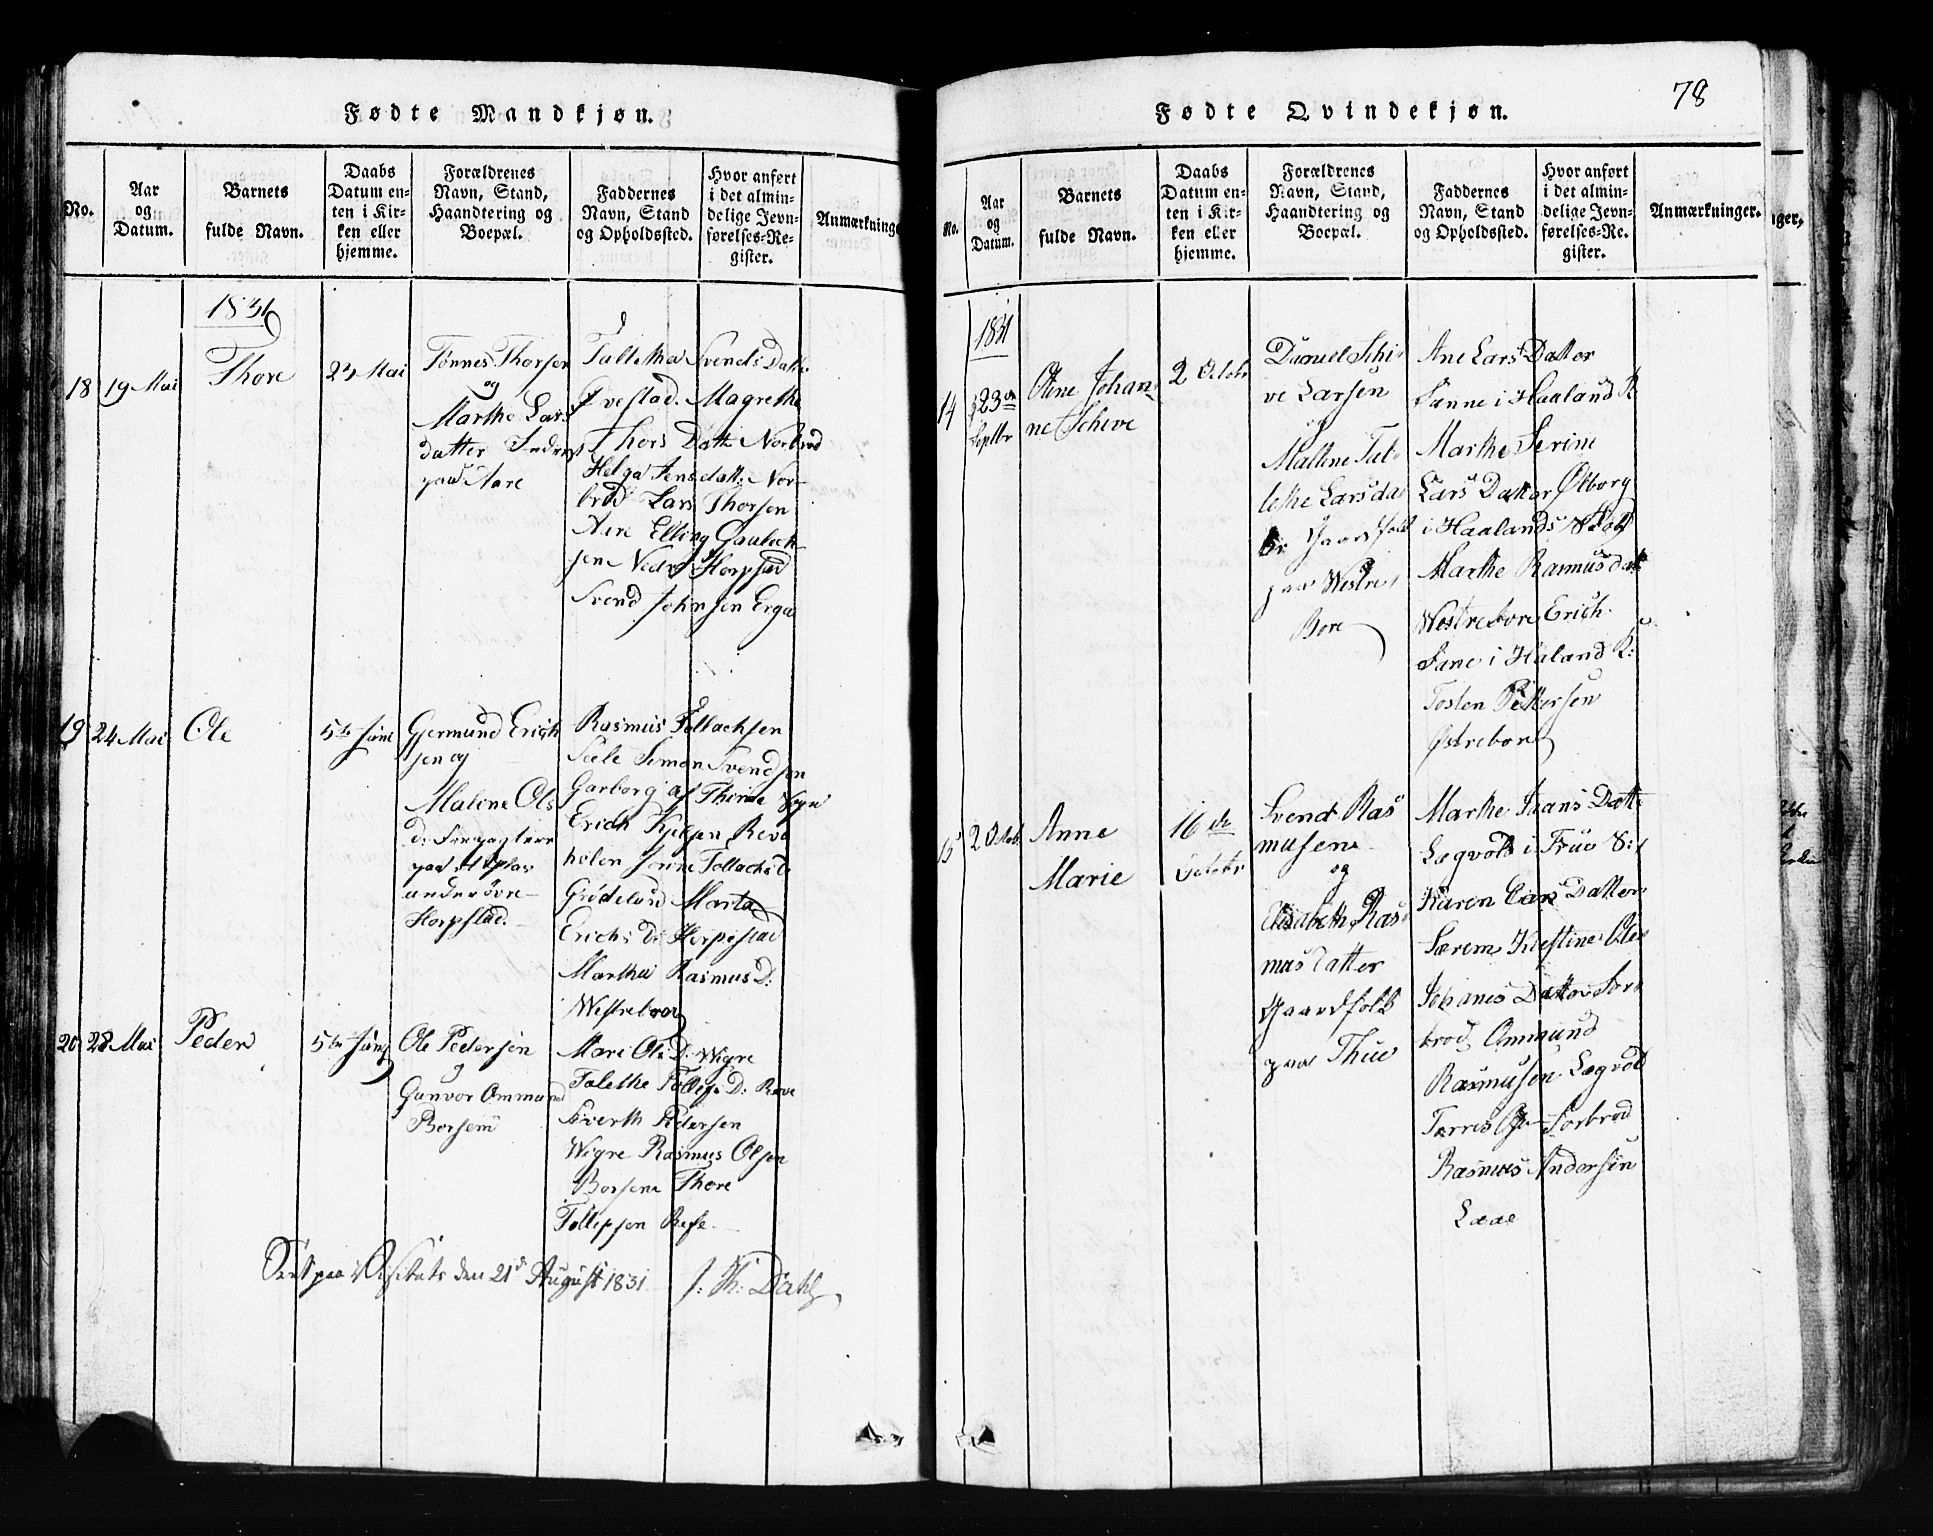 Fødte Mandkjøn.
No.
Aar
og
Datum.
Barnets
fulde Navn.
Daabs
Datum en-
ten i Kir-
ken eller
hjemme.
Forældrenes
Navn, Stand,
Haandtering og
Boepæl.
Faddernes
Navn, Stand
og Opholdssted.
Hvor anført
i det almin-
delige Jevn-
førelses-Re-
gister.
Anmærkninge
1831
18
19 Mai
Thore
23 Mai
Tønnes Thorsen
og
Marthe Lars
datter
paa Aare
Talletha Svends Datt
Tvestad. Magrethe
Thors Datt Norbrød
Helga Jens datt. Nor-
brød Lars Thorsen
Aare Elling
sen Nedre Horpstad
Svend Johnsen Erga
19
24 Mai
Ole
5te Juni
Gjermund Erich
sen og
Malene Ols
D:
paa
under øvre
Horpstad.
Rasmus Tollachsen
Sele Simon Svendsen
Garborg af Thime Sogn
Erich
Tollachs D
Grødeland Marta
Erichs D: Horpestad
Martha Rasmus D:
Westreboer
20
28 Mai
Peder
5te Juni
Ole Pedersen
og
Gunvor Ommund
Borsem
Mari Ols D: Wigre
Talethe Tollefs D: Reve
Siverth Pedersen
Wigre Rasmus Olsen
Borsem Thore
Tollefsen Refe
Seet paa Visitats den 21de August 1831 J: Th: Dahl,
78
Fødte Qvindekjøn.
No.
Aar
og
Datum.
Barnets
fulde Navn.
Daabs
Datum en-
ten i Kir-
ken eller
hjemme.
Forældrenes
Navn, Stand,
Haandtering og
Boepæl.
Faddernes
Navn, Stand
og Opholdssted.
Hvor anført
i det almin-
delige Jevn-
førelses-Re-
gister.
Anmærkninger.
1831
14
23de
Septbr
Oline Johan-
ne Schive
2 Octobr
Daniel Schi-
ve Larsen
og
Mallene Tal-
lethe Larsdat-
ter Gaardfolk
paa Westre
Bore
Ane Lars Datter
Sanne i Haaland K
Marthe Serine
Lars Datter Ølborg
i Haalands Skolt
Marthe Rasmusdatt
Westrebore Erich
Sane i Haland K:
Tosten Pettersen
Østrebore
15
2 Octob.
Anne
Marie
16de
Octobr
Svend Ras
musen
og
Elisabeth Ras
mus Datter
Gaardfolk
paa Thue
Marthe Hans Datt
Lægvold i Frue S:
Karen Lars Datter
Særem Kiestine Ole
Johanes Datter Sør-
brød Ommund
Rasmusen Lægvold
Tørres Sørbrød
Rasmus Andersen
Laae